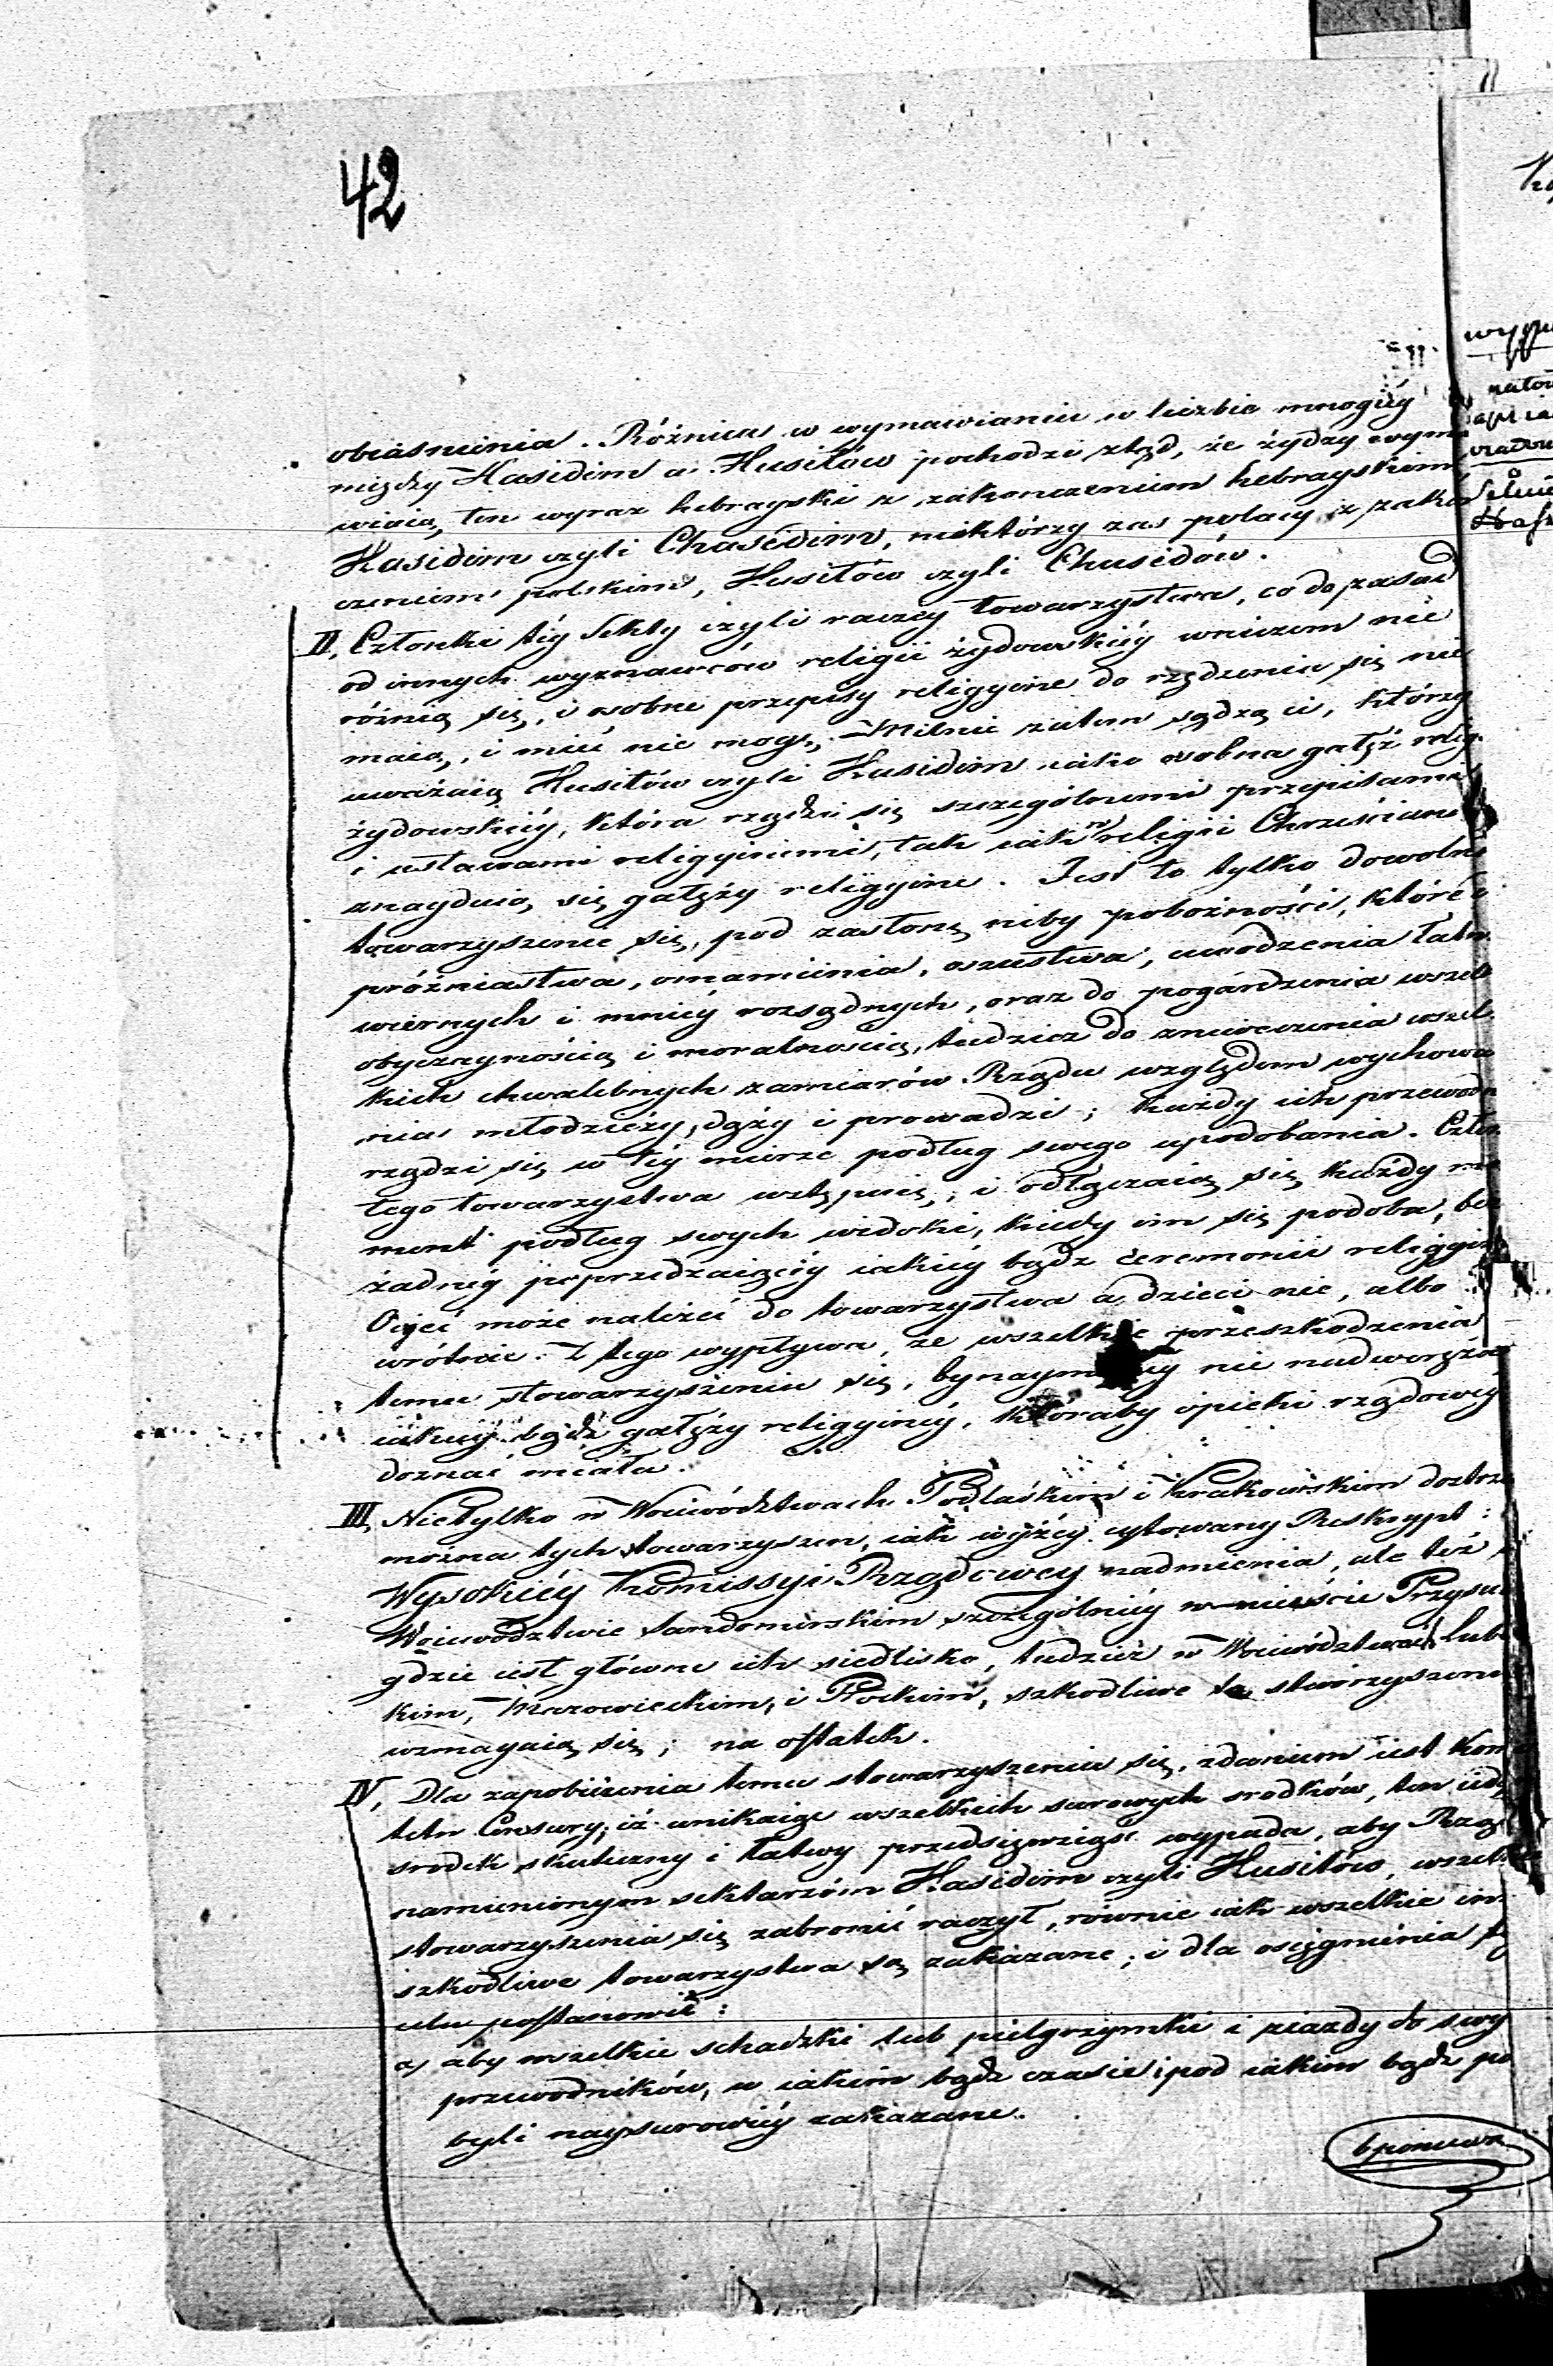 42
obiasnienia. Różnica w wymawianiu w liczbie mnogiéy
między Hasidim a Husitów pochodzi ztąd, że żydzy wyma
wiaią ten wyraz hebrayski z zakonczeniem hebrayskiem
Hasidim czyli Chasidim, niektórzy zas polacy z zakoń
czeniem polskim, Husitów czyli Chusidów.
II, Członki téy Sekty czyli raczéy towarzystwa, co do zasad
od innych wyznawców religii żydowskiéy wniczem nie
różnią się, i osobne przepisy religyine do rządzenia się nie
maią, i mieć nie mogą. Milnie zatem sądzą ci, którzy
uważaią Husitów czyli Hasidim iako osobna gałęź relig.
żydowskiéy, która rządzi się szczególnemi przepisami
i ustawami religyinemi, tak iak w religii Chrześcians
znayduią się gałęzy religyine. Jest to tylko dowolne
towarzyszenie się, pod zasłoną niby pobożności, które
próżniastwa, omamienia, oszustwa, uwodzenia łatw
wiernych i mniéy rozsądnych, oraz do pogardzenia wszel
obyczaynością i moralnością, tudzież do zniweczenia wszel
kich chwalebnych zamiarów Rządu względem wychowa
nia młodzieży, dąży i prowadzi; każdy ich przewodn
rządzi się w téy mierze podług swego upodobania. Człon
tego towarzystwa wstępuią, i odłączaią się każdy mo
ment podług swych widoki, kiedy im się podoba, bez
żadnéy poprzedzaiącéy iakiéy bądź ceremonii religyin
Oyciec może należeć do towarzystwa a dzieci nie, albo
wrótnie. Z tego wypływa, że wszelkie przeszkodzenia
temu stowarzyszeniu się, bynaymniéy nie nadweręża
iakiéy bądź gałęzy religyinéy, któraby opieki rządowéy
doznać miała.
III, Nietylko w Woiewództwach Podlaskim i Krakowskim dostrzedz
można tych towarzyszen, iak wyżéy cytowany Reskrypt
Wysokiéy Kommissyi Rządowey nadmienia, ale też
Woiewództwie Sandomirskim szczególniéy w mieście Przysu
gdzie iest główne ich siedlisko, tudzież w Woiewództwach Lube
kim, Mazowieckim, i Płockim, szkodliwe te stworzyszenia
wzmagaią się; na ostatek.
IV, Dla zapobieżenia temu stowarzyszeniu się, zdaniem iest Komi
tetu Censury, iż unikaiąc wszelkich surowych srodków, ten ied
srodek skuteczny i łatwy przedsięwziąść wypada, aby Rząd
namienionym sektarzóm Hasidim czyli Husitów, wszelk
stowarzyszenia się zabronić raczył, równie iak wszelkie in
szkodliwe towarzystwa są zakazane; i dla osięgnienia
celu postanowił:
a, aby wszelkie schadzki lub pielgrzymki i ziazdy do swy
przewodników, w iakim bądź czasie i pod iakim bądź po
byli naysurowiéy zakazane.
b ponieważ